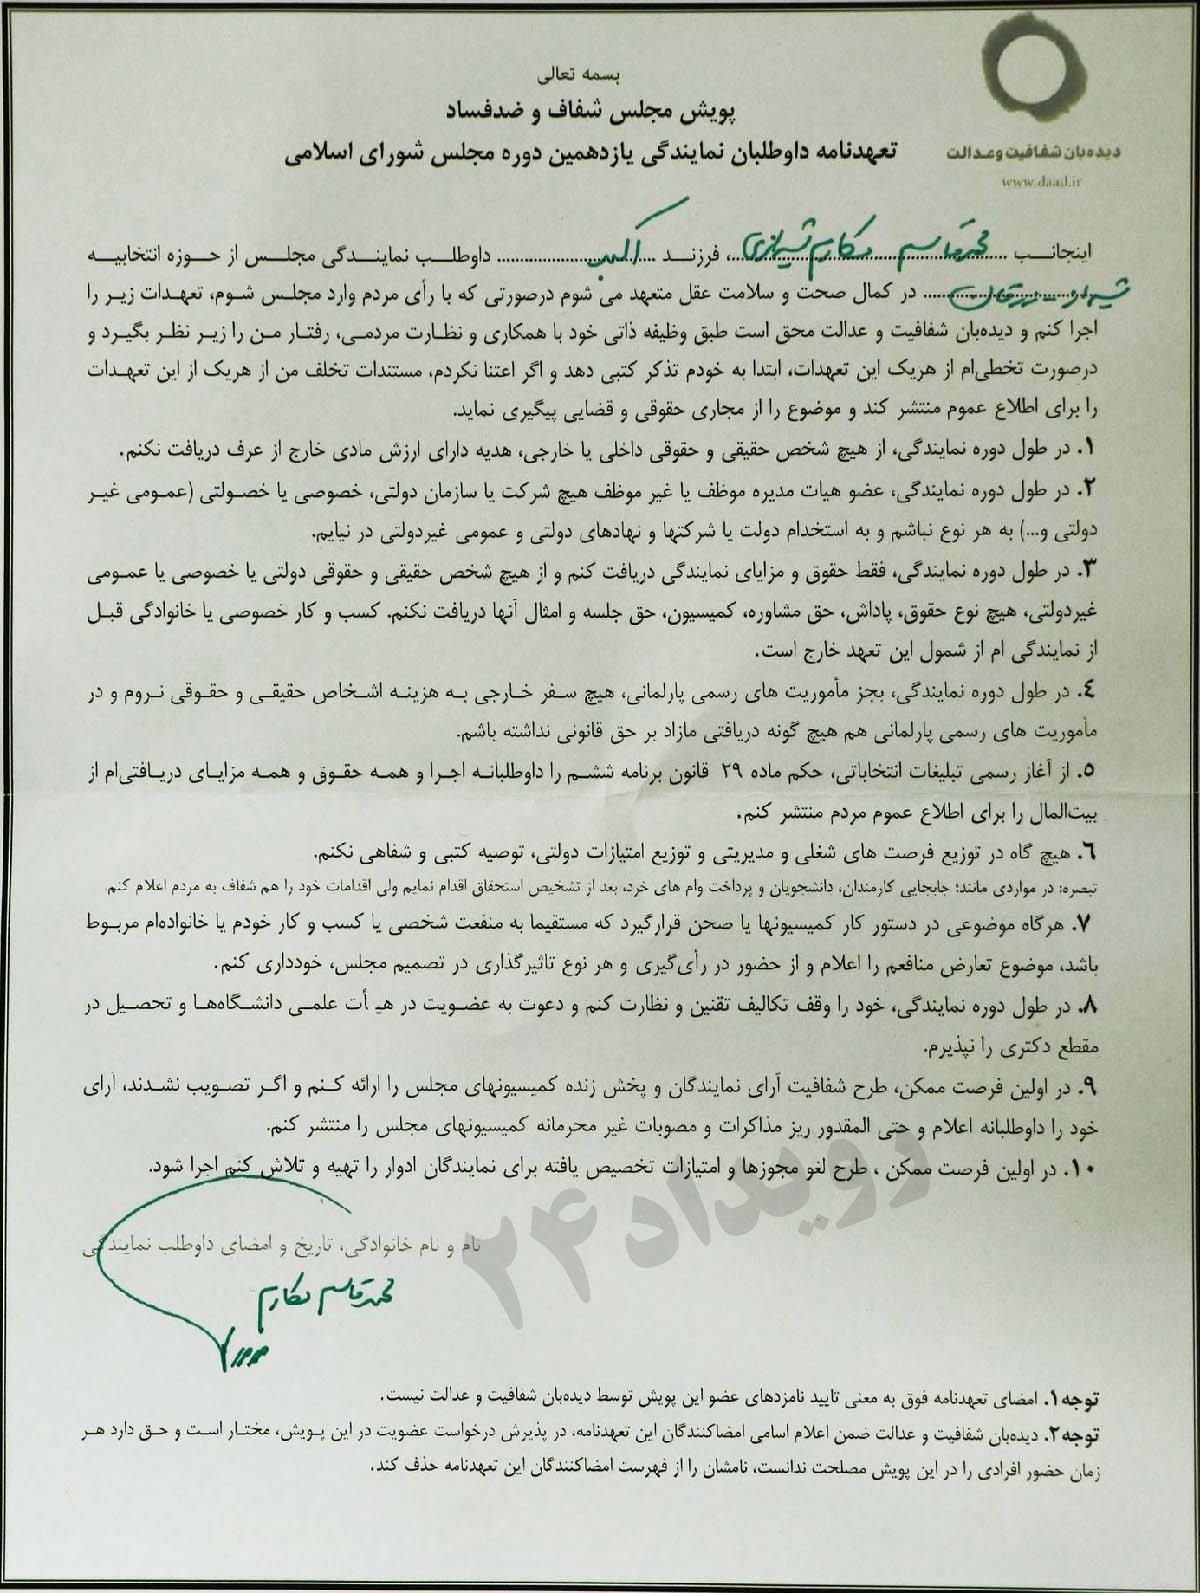 بسمه تعالی
پویش مجلس شفاف و ضدفساد
تعهدنامه داوطلبان نمایندگی یازدهمین دوره مجلس شورای اسلامی
دیده‌بان شفافیت و عدالت
www.daad.ir
اینجانب محمدقاسم مکارم شیرازی، فرزند اکبر داوطلب نمایندگی مجلس از حوزه انتخابیه
در کمال صحت و سلامت عقل متعهد می شوم درصورتی که با رأی مردم وارد مجلس شوم، تعهدات زیر را
اجرا کنم و دیده‌بان شفافیت و عدالت محق است طبق وظیفه ذاتی خود با همکاری و نظارت مردمی، رفتار من را زیر نظر بگیرد و
درصورت تخطی‌ام از هریک این تعهدات، ابتدا به خودم تذکر کتبی دهد و اگر اعتنا نکردم، مستندات تخلف من از هریک از این تعهدات
را برای اطلاع عموم منتشر کند و موضوع را از مجاری حقوقی و قضایی پیگیری نماید.
۱. در طول دوره نمایندگی، از هیچ شخص حقیقی و حقوقی داخلی یا خارجی، هدیه دارای ارزش مادی خارج از عرف دریافت نکنم.
۲. در طول دوره نمایندگی، عضو هیات مدیره موظف یا غیر موظف هیچ شرکت یا سازمان دولتی، خصوصی یا خصولتی (عمومی غیر
دولتی و...) به هر نوع نباشم و به استخدام دولت یا شرکتها و نهادهای دولتی و عمومی غیردولتی در نیایم.
۳. در طول دوره نمایندگی، فقط حقوق و مزایای نمایندگی دریافت کنم و از هیچ شخص حقیقی و حقوقی دولتی یا خصوصی یا عمومی
غیردولتی، هیچ نوع حقوق، پاداش، حق مشاوره، کمیسیون، حق جلسه و امثال آنها دریافت نکنم. کسب و کار خصوصی یا خانوادگی قبل
از نمایندگی ام از شمول این تعهد خارج است.
۴. در طول دوره نمایندگی، بجز مأموریت های رسمی پارلمانی، هیچ سفر خارجی به هزینه اشخاص حقیقی و حقوقی نروم و در
مأموریت های رسمی پارلمانی هم هیچ گونه دریافتی مازاد بر حق قانونی نداشته باشم.
۵. از آغاز رسمی تبلیغات انتخاباتی، حکم ماده ۲۹ قانون برنامه ششم را داوطلبانه اجرا و همه حقوق و همه مزایای دریافتی‌ام از
بیت‌المال را برای اطلاع عموم مردم منتشر کنم.
۶. هیچ گاه در توزیع فرصت های شغلی و مدیریتی و توزیع امتیازات دولتی، توصیه کتبی و شفاهی نکنم.
تبصره: در مواردی مانند؛ جابجایی کارمندان، دانشجویان و پرداخت وام های خرد، بعد از تشخیص استحقاق اقدام نمایم ولی اقدامات خود را هم شفاف به مردم اعلام کنم.
۷. هرگاه موضوعی در دستور کار کمیسیونها یا صحن قرارگیرد که مستقیما به منفعت شخصی یا کسب و کار خودم یا خانواده‌ام مربوط
باشد، موضوع تعارض منافعم را اعلام و از حضور در رأی‌گیری و هر نوع تاثیرگذاری در تصمیم مجلس، خودداری کنم.
۸. در طول دوره نمایندگی، خود را وقف تکالیف تقنین و نظارت کنم و دعوت به عضویت در هیأت علمی دانشگاه‌ها و تحصیل در
مقطع دکتری را نپذیرم.
۹. در اولین فرصت ممکن، طرح شفافیت آرای نمایندگان و پخش زنده کمیسیونهای مجلس را ارائه کنم و اگر تصویب نشدند، آرای
خود را داوطلبانه اعلام و حتی المقدور ریز مذاکرات و مصوبات غیر محرمانه کمیسیونهای مجلس را منتشر کنم.
۱۰. در اولین فرصت ممکن ، طرح لغو مجوزها و امتیازات تخصیص یافته برای نمایندگان ادوار را تهیه و تلاش کنم اجرا شود.
رویداد۲۴
نام و نام خانوادگی، تاریخ و امضای داوطلب نمایندگی
محمدقاسم مکارم
توجه۱. امضای تعهدنامه فوق به معنی تایید نامزدهای عضو این پویش توسط دیده‌بان شفافیت و عدالت نیست.
توجه۲. دیده‌بان شفافیت و عدالت ضمن اعلام اسامی امضاکنندگان این تعهدنامه، در پذیرش درخواست عضویت در این پویش، مختار است و حق دارد هر
زمان حضور افرادی را در این پویش مصلحت ندانست، نامشان را از فهرست امضاکنندگان این تعهدنامه حذف کند.